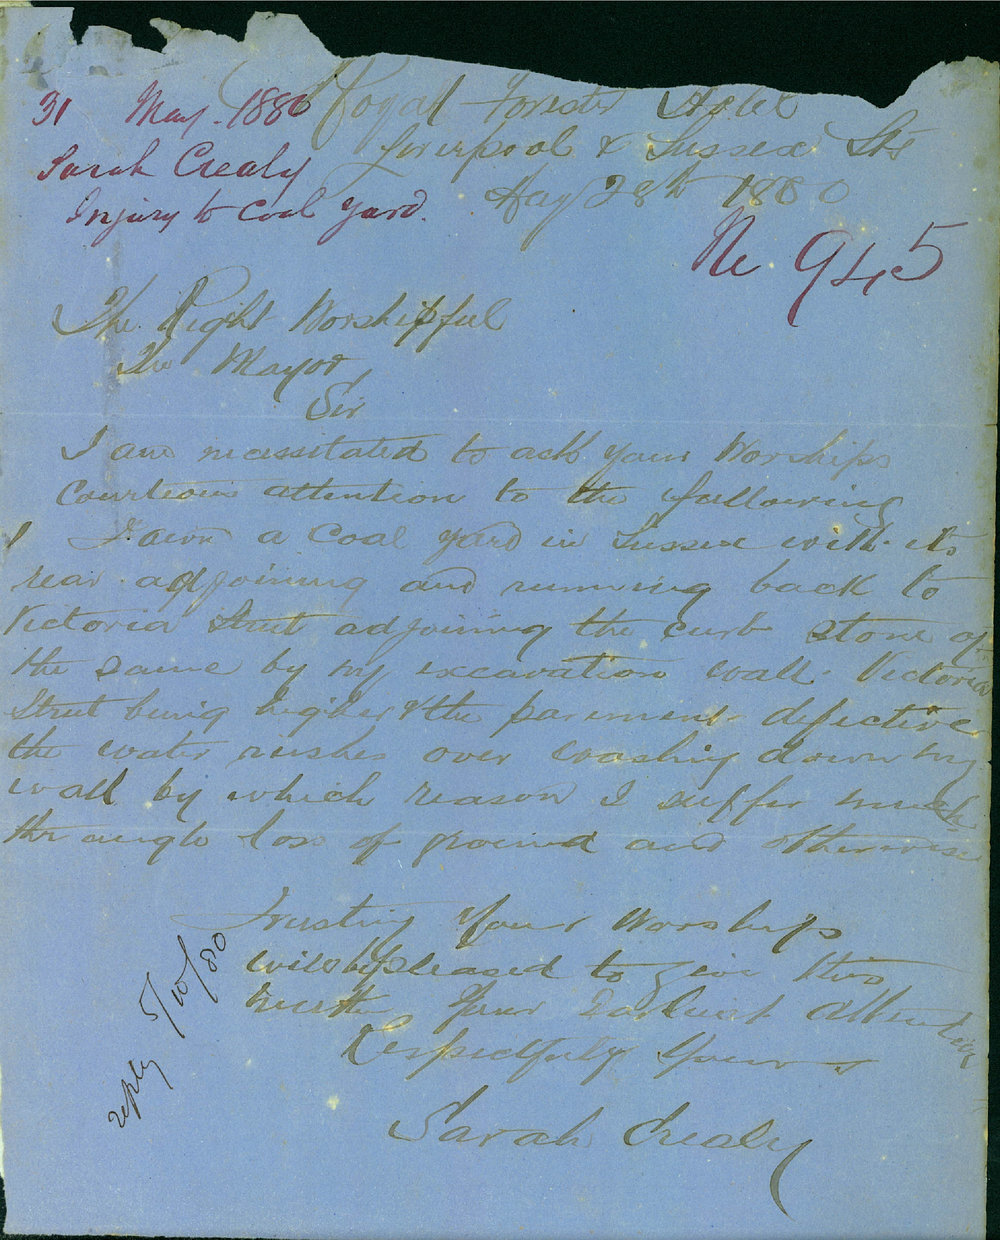 31 May. 1880
Sarah Crealy
Injury to Coal Yard.
Royal Forester Hotel
Liverpool & Sussex Sts
May 28th 1880
No 945
The Right Worshipful
The Mayor
Sir
I am necessitated to ask your Worships
Courteous attention to the following
I own a Coal Yard in Sussex with its
rear adjoining and running back to
Victoria Street adjoining the curb stone of
the same by my excavation wall. Victoria
Street being higher & the pavement defective
the water rushes over washing down my
wall by which reason I suffer much
through loss of ground and otherwise
Trusting Your Worships
will be pleased to give this
matter Your Earliest attention
Respectfully Yours
Sarah Crealy
reply 5/10/80